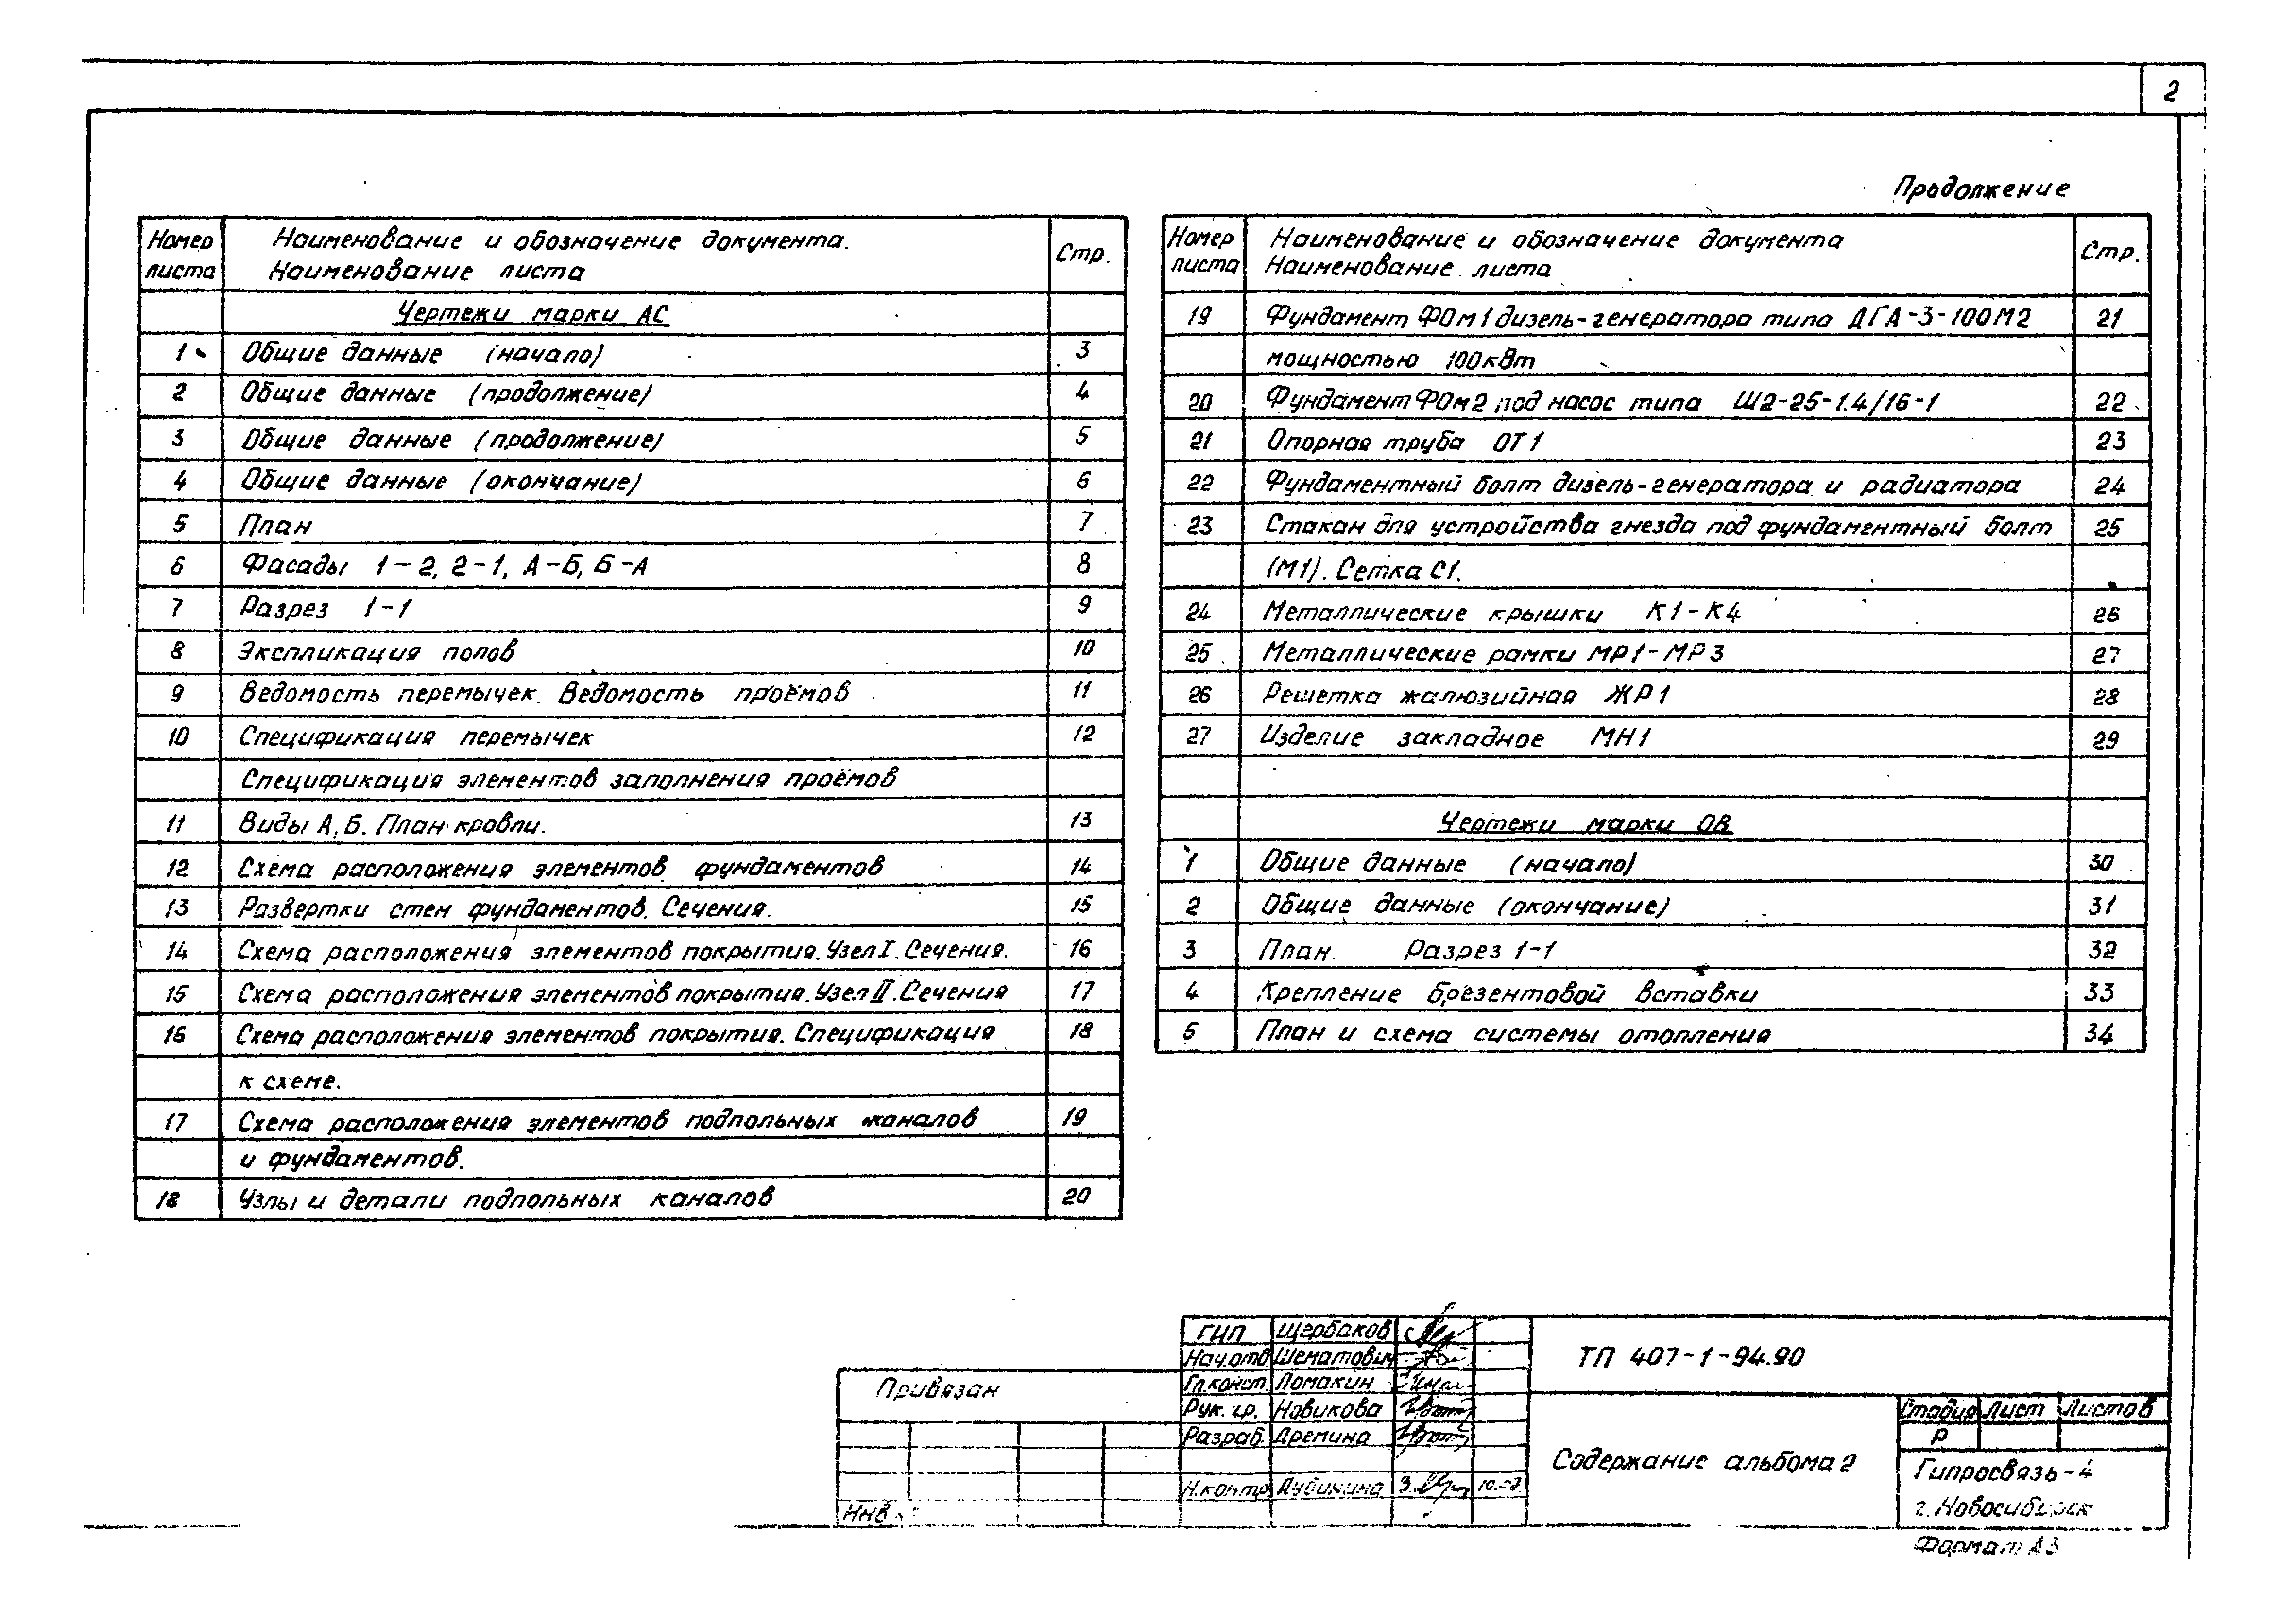 2
Продолжение
Номер листа | Наименование и обозначение документа. Наименование листа | Стр.
Чертежи марки АС
1 Общие данные (начало) 3
2 Общие данные (продолжение) 4
3 Общие данные (продолжение) 5
4 Общие данные (окончание) 6
5 План 7
6 Фасады 1-2, 2-1, А-Б, Б-А 8
7 Разрез 1-1 9
8 Экспликация полов 10
9 Ведомость перемычек. Ведомость проёмов 11
10 Спецификация перемычек 12
Спецификация элементов заполнения проёмов
11 Виды А, Б. План кровли. 13
12 Схема расположения элементов фундаментов 14
13 Развертки стен фундаментов. Сечения. 15
14 Схема расположения элементов покрытия. Узел I. Сечения. 16
15 Схема расположения элементов покрытия. Узел II. Сечения 17
16 Схема расположения элементов покрытия. Спецификация 18
к схеме.
17 Схема расположения элементов подпольных каналов 19
и фундаментов.
18 Узлы и детали подпольных каналов 20
Номер листа | Наименование и обозначение документа Наименование листа | Стр.
19 Фундамент ФОм1 дизель-генератора типа ДГА-3-100М2 21
мощностью 100кВт
20 Фундамент ФОм2 под насос типа Ш2-25-1.4/16-1 22
21 Опорная труба ОТ1 23
22 Фундаментный болт дизель-генератора и радиатора 24
23 Стакан для устройства гнезда под фундаментный болт 25
(М1). Сетка С1.
24 Металлические крышки К1-К4 26
25 Металлические рамки МР1-МР3 27
26 Решетка жалюзийная ЖР1 28
27 Изделие закладное МН1 29
Чертежи марки ОВ
1 Общие данные (начало) 30
2 Общие данные (окончание) 31
3 План. Разрез 1-1 32
4 Крепление брезентовой вставки 33
5 План и схема системы отопления 34
Привязан
Инв
ГИП Щербаков
Нач.отд Шематович
Гл.конст. Ломакин
Рук. гр. Новикова
Разраб. Дремина
Н.контр Дубинина
ТП 407-1-94.90
Содержание альбома 2
Стадия Лист Листов
Р
Гипросвязь-4
г. Новосибирск
Формат А3